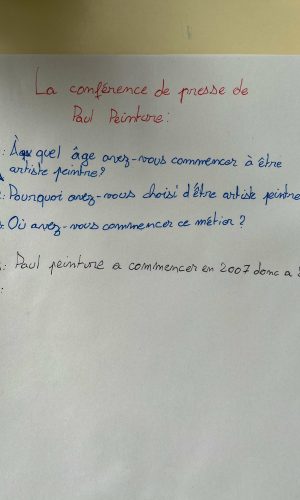 La conférence de presse de
Paul Peinture:
: À quel âge avez-vous commencer à être
artiste peintre?
: Pourquoi avez-vous choisi d'être artiste peintre
Où avez-vous commencer ce métier?
: Paul peinture a commencer en 2007 donc a
: